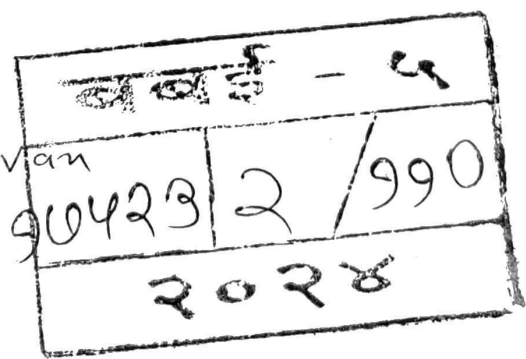 बबई - ५
van
१७५२३ २ / ११०
२०२४